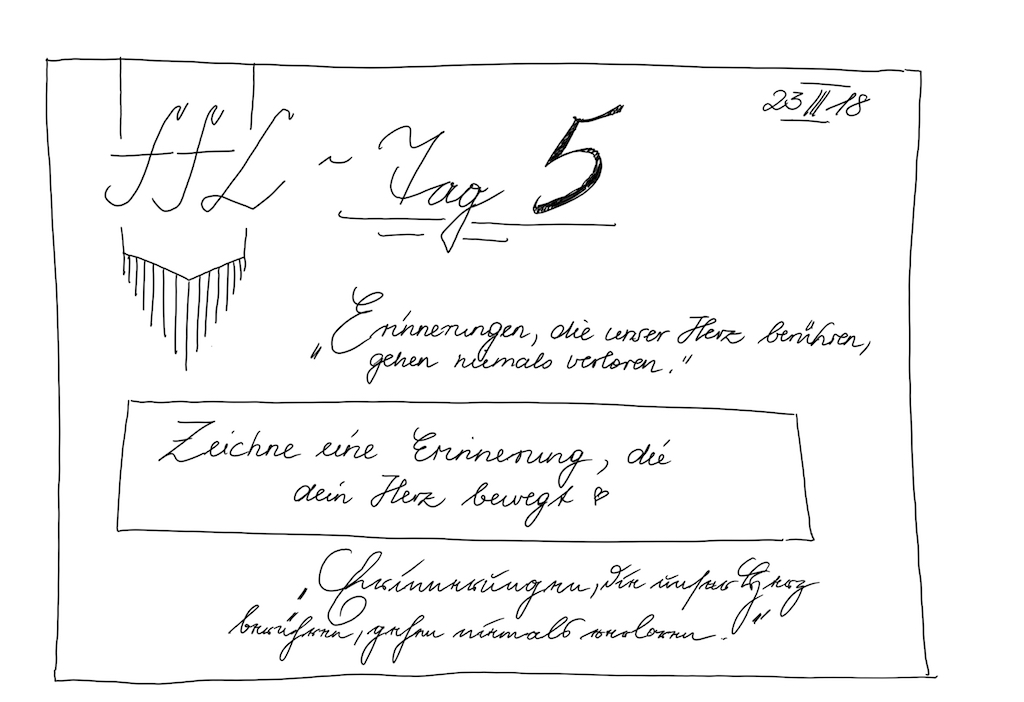 23 III 18
ffL ~ Tag 5
„Erinnerungen, die unser Herz berühren,
gehen niemals verloren."
Zeichne eine Erinnerung, die
dein Herz bewegt ♡
„Erinnerungen, die unser Herz
berühren, gehen niemals verloren."